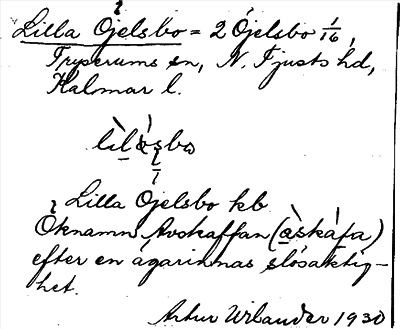 Lilla Öjelsbo = 2 Öjelsbo 1/16,
Tryserums sn, N. Tjusts hd,
Kalmar l.
Lilla Öjelsbo kb
Öknamn Avskaffan (àskáfa)
efter en ägarinnas slösaktig-
het.
Artur Wilander 1930